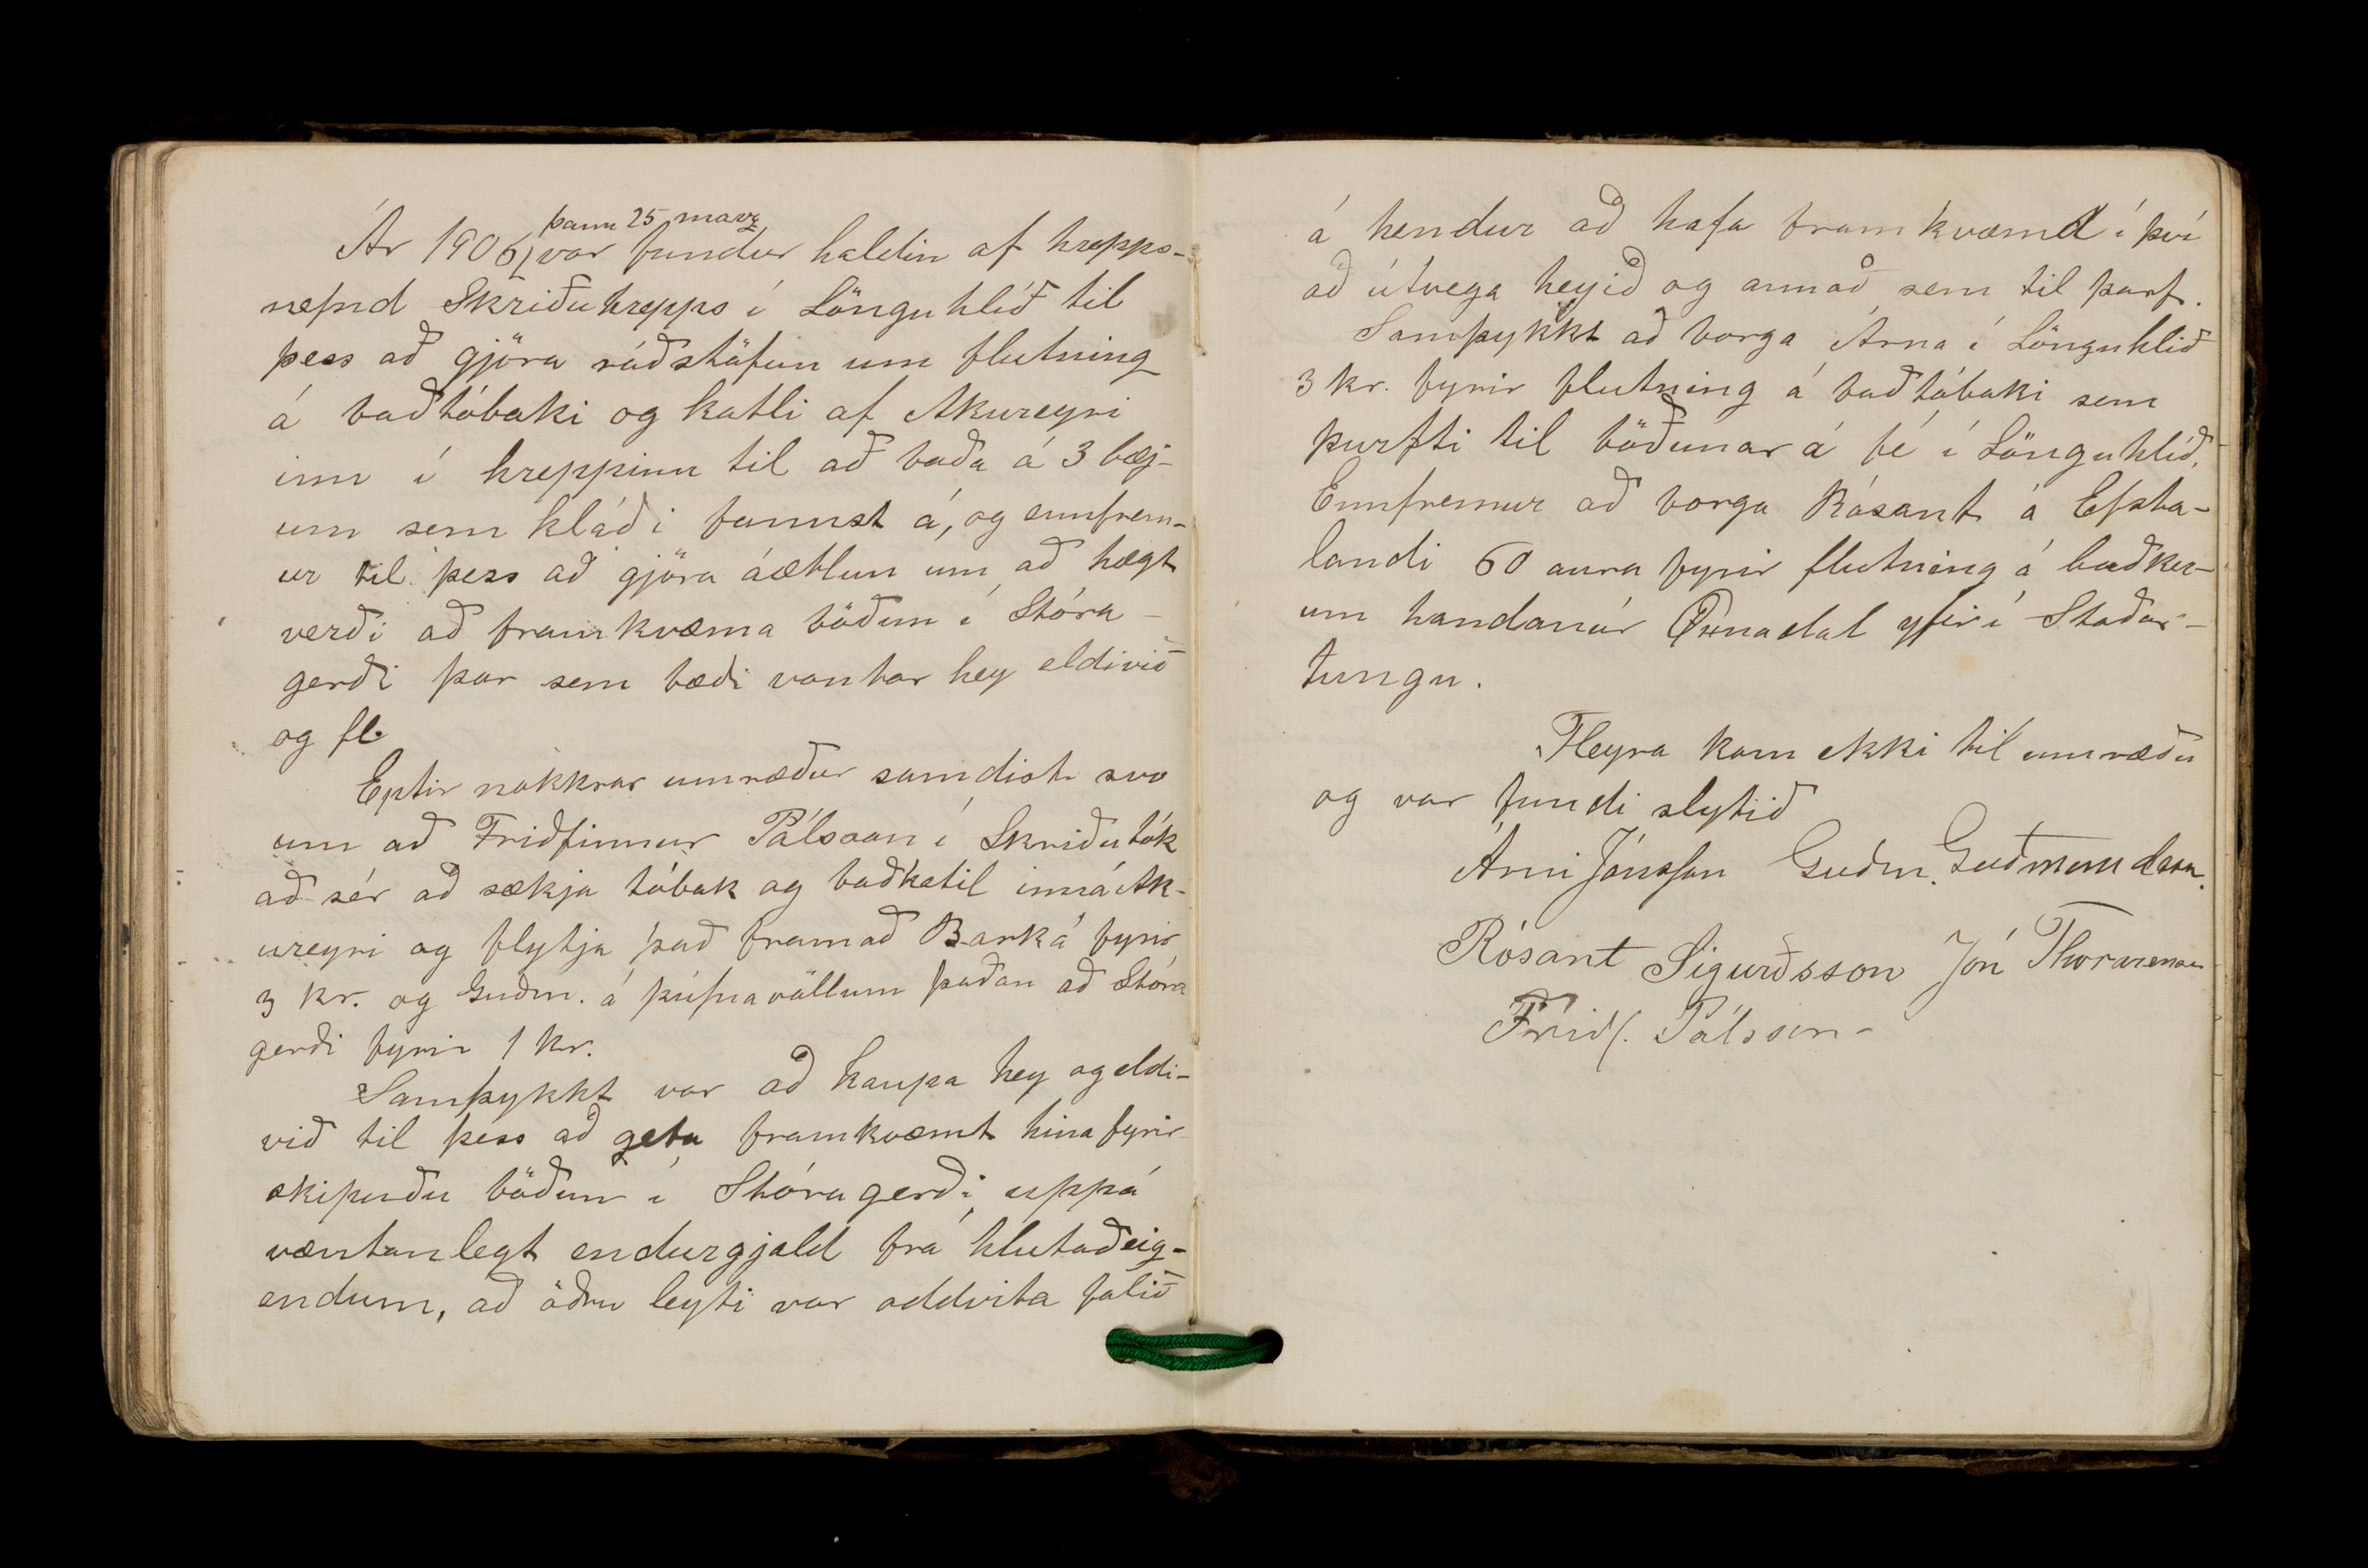 Ár 1906, þann 25 marz var fundur haldin af hrepps-
nefnd Skriðuhrepps í Lönguhlíð til
þess að gjöra ráðstöfun um flutning
á baðtóbaki og katli af Akureyri
inn í hreppinn til að baða á 3 bæj-
um sem kláði fannst á, og ennfrem-
ur til þess að gjöra áætlun um að hægt
verði að framkvæma böðun í Stóra-
gerði þar sem bæði vantar hey eldivið
og fl.
Eptir nokkrar umræður samdist svo
um að Friðfinnur Pálsson í Skriðu tók
að sér að sækja tóbak og baðketil inná Ak-
ureyri og flytja það framað Barká fyrir
3 kr. og Guðm. á þúfnavöllum þaðan að Stóra
gerði fyrir 1 kr.
Samþykkt var að kaupa hey og eldi-
við til þess að geta framkvæmt hina fyrir-
skipuðu böðun í Stóragerði, uppá
væntanlegt endurgjald frá hlutaðeig-
endum, að öðru leyti var oddvita falið
á hendur að hafa framkvæmd í því
að útvega heyið og annað sem til þarf.
Samþykkt að borga Árna í Lönguhlíð
3 kr. fyrir flutning á baðtóbaki sem
þurfti til böðunar á fé í Lönguhlíð.
Ennfremur að borga Rósant á Efsta-
landi 60 aura fyrir flutning á baðker-
um handanúr Öxnadal yfir í Staðar-
tungu.
Fleyra kom ekki til umræðu
og var fundi slytið
Árni Jónsson Guðm. Guðmundsson.
Rósant Sigurðsson Jón Thorarensen
Friðf. Pálsson